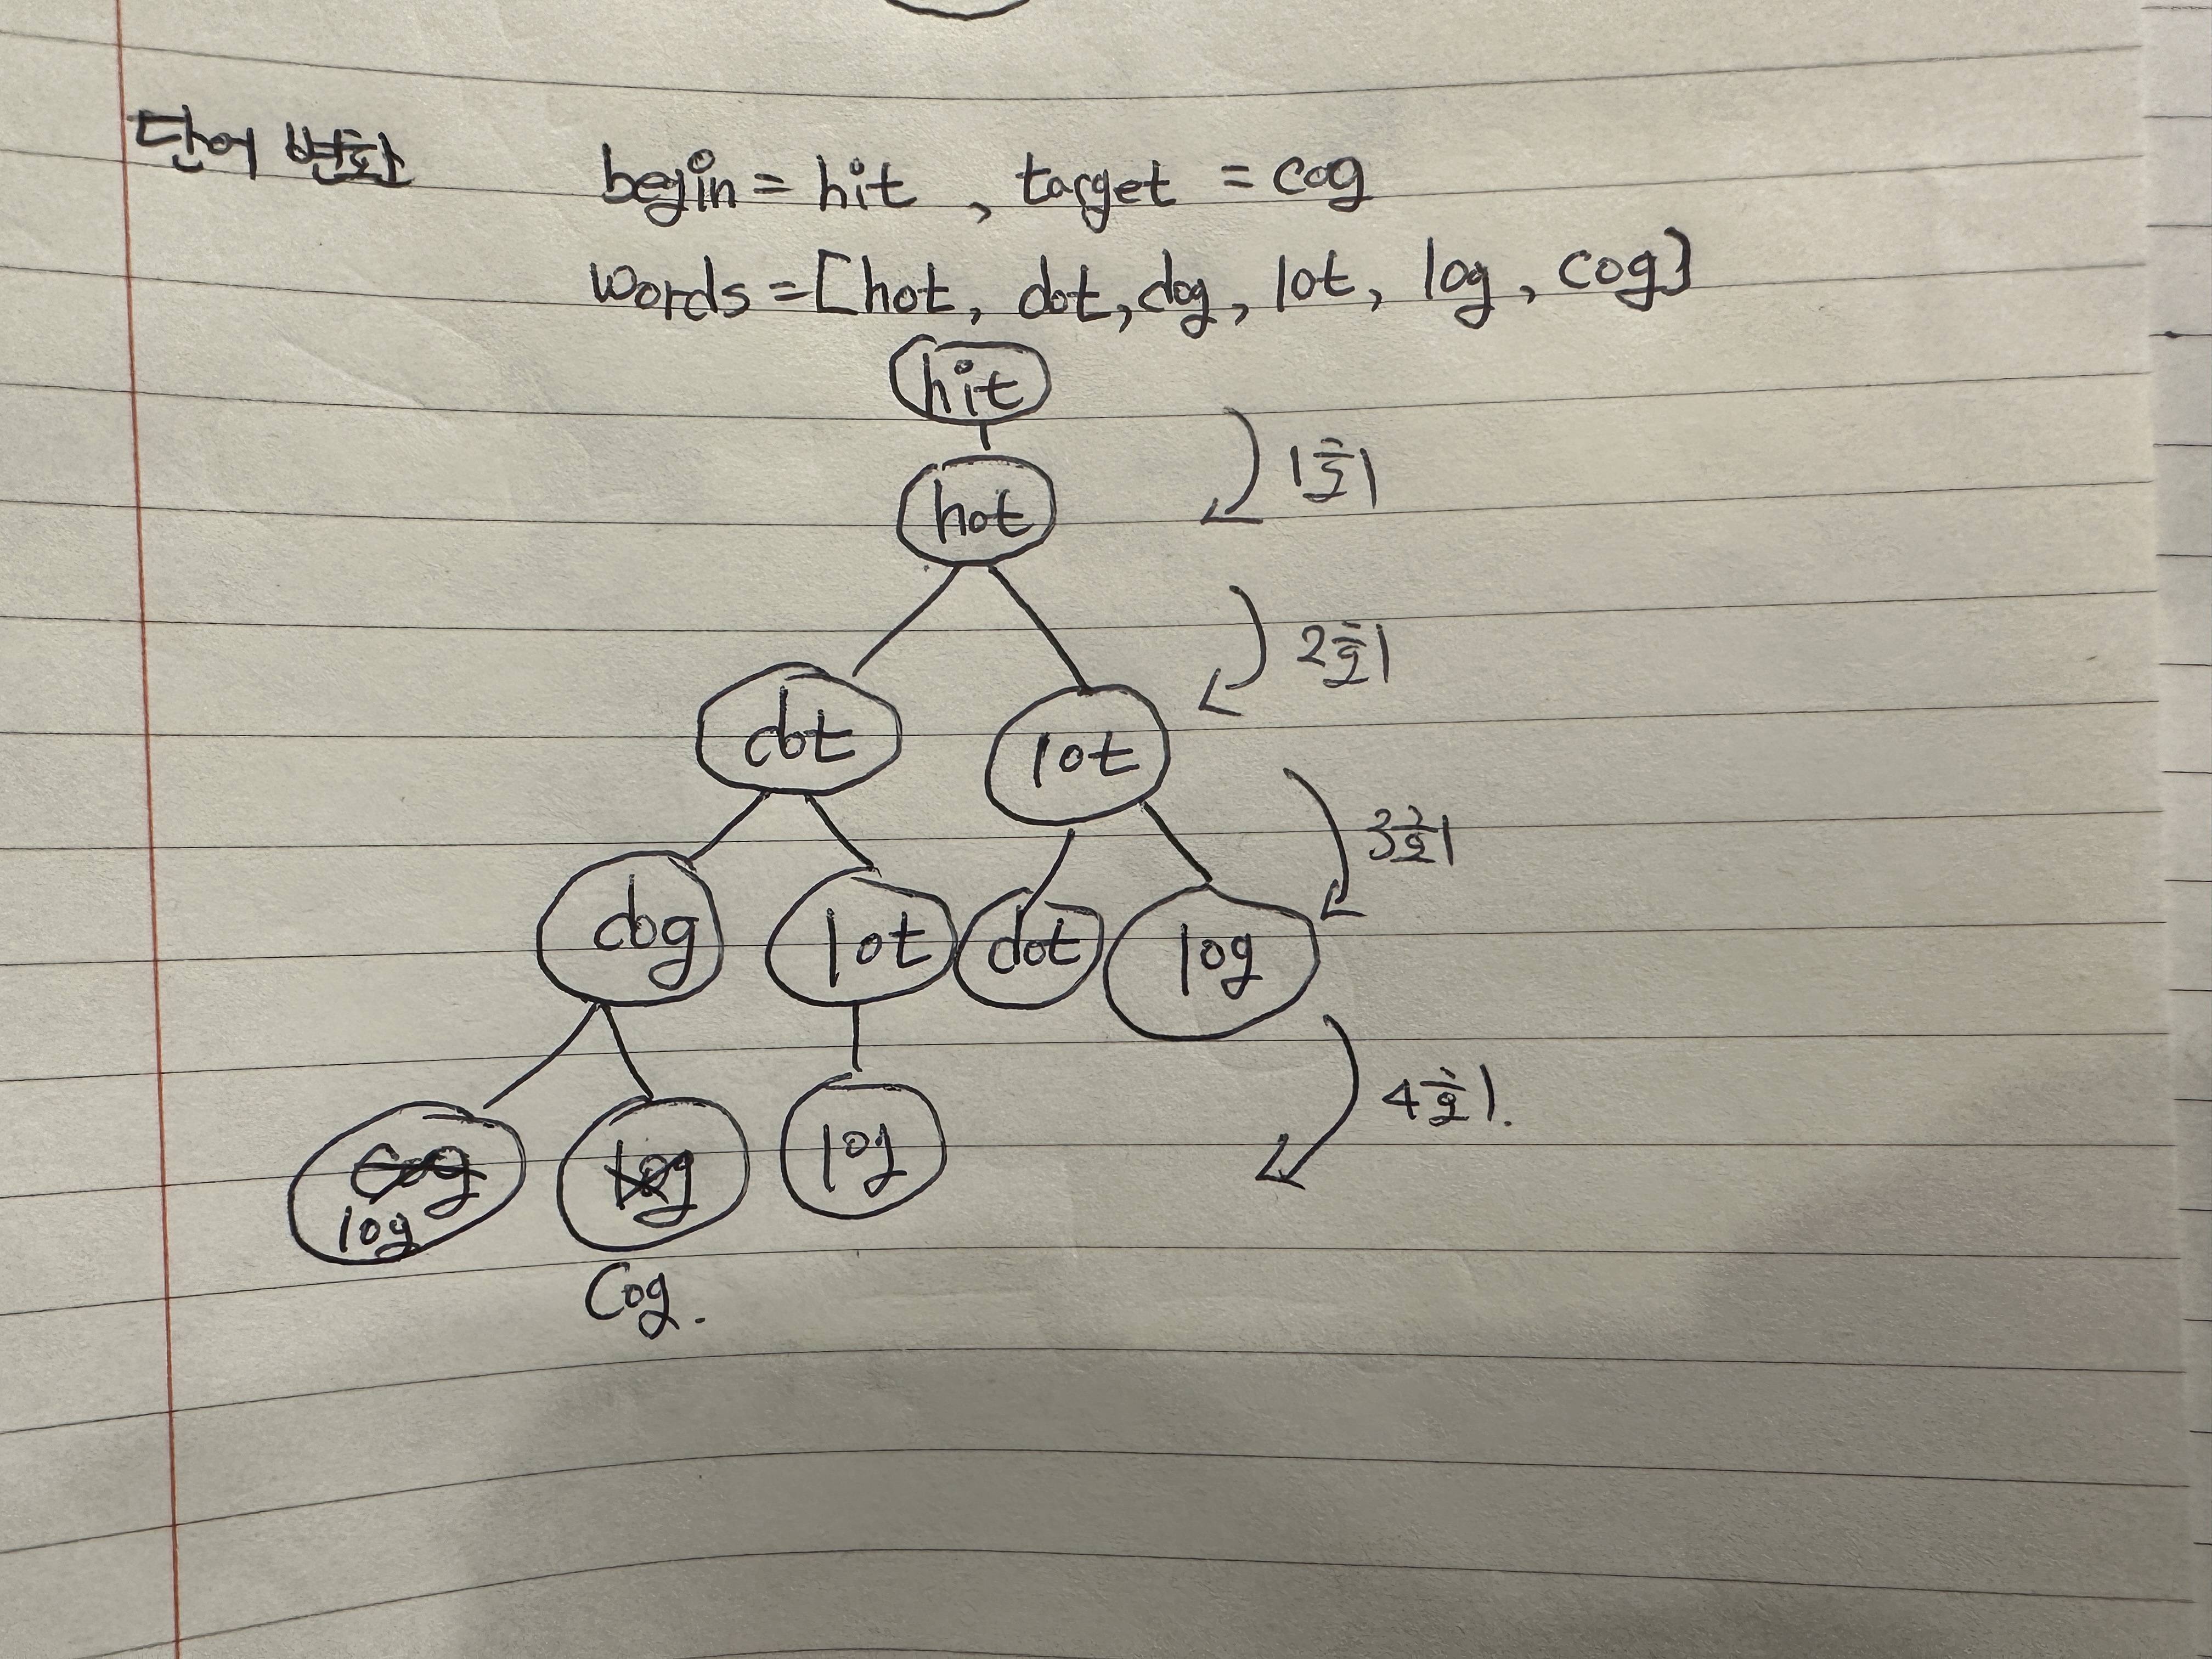 단어 변환
begin = hit , target = cog
words = [hot, dot, dog, lot, log, cog]
hit
1순회
hot
2순회
dot lot
3순회
dog lot dot log
4순회.
cog log log
log
Cog.